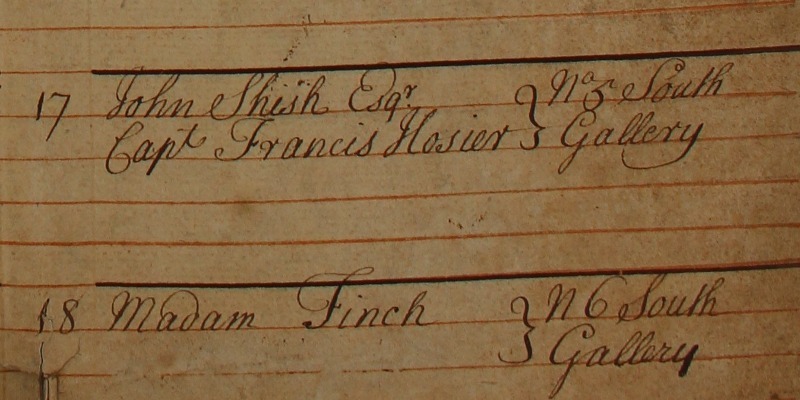 17 John Shish Esqr. } No 5 South
Capt Francis Hosier } Gallery
18 Madam Finch } N 6 South
Gallery